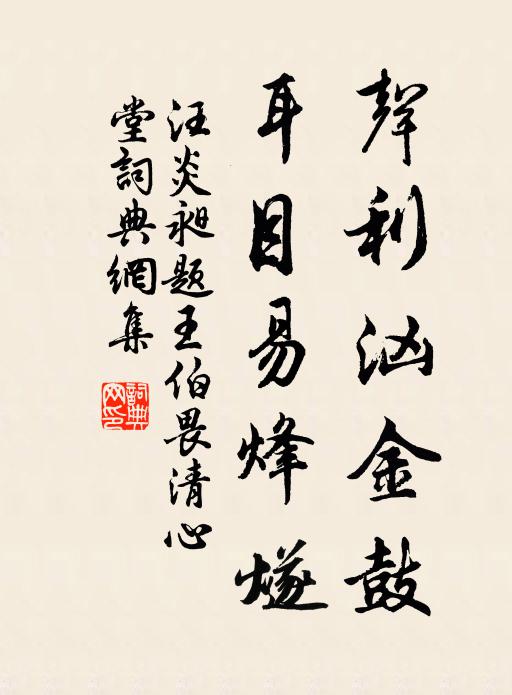 聲利汹金鼓
耳目易烽燧
汪炎昶题王伯畏清心
堂詞典網集
詞典
网印